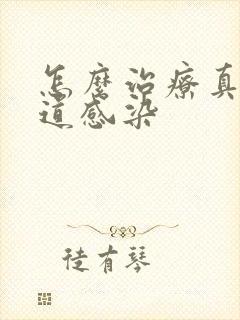 怎麼治療真
道感染
徒有琴